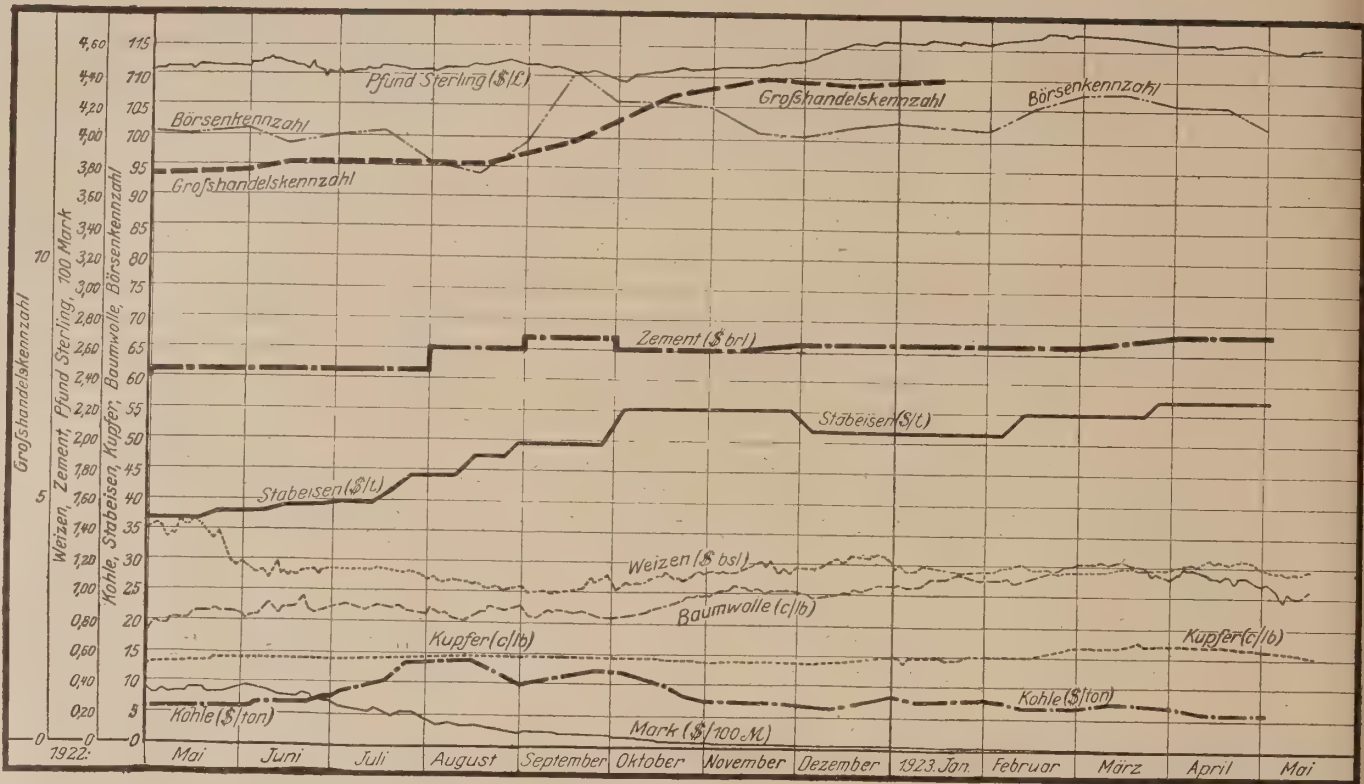 Großhandelskennzahl
10
5
0
Weizen, Zement, Pfund Sterling, 100 Mark
4,60
4,40
4,20
4,00
3,80
3,60
3,40
3,20
3,00
2,80
2,60
2,40
2,20
2,00
1,80
1,60
1,40
1,20
1,00
0,80
0,60
0,40
0,20
0
Kohle, Stabeisen, Kupfer, Baumwolle, Börsenkennzahl
115
110
105
100
95
90
85
80
75
70
65
60
55
50
45
40
35
30
25
20
15
10
5
0
Pfund Sterling ($/£)
Börsenkennzahl
Großhandelskennzahl
Großhandelskennzahl
Börsenkennzahl
Zement ($ brl)
Stabeisen ($/t)
Stabeisen ($/t)
Weizen ($ bsl)
Baumwolle (c/lb)
Kupfer (c/lb)
Kupfer (c/lb)
Kohle ($/ton)
Kohle ($/ton)
Mark ($/100 M)
1922: Mai Juni Juli August September Oktober November Dezember 1923. Jan. Februar März April Mai